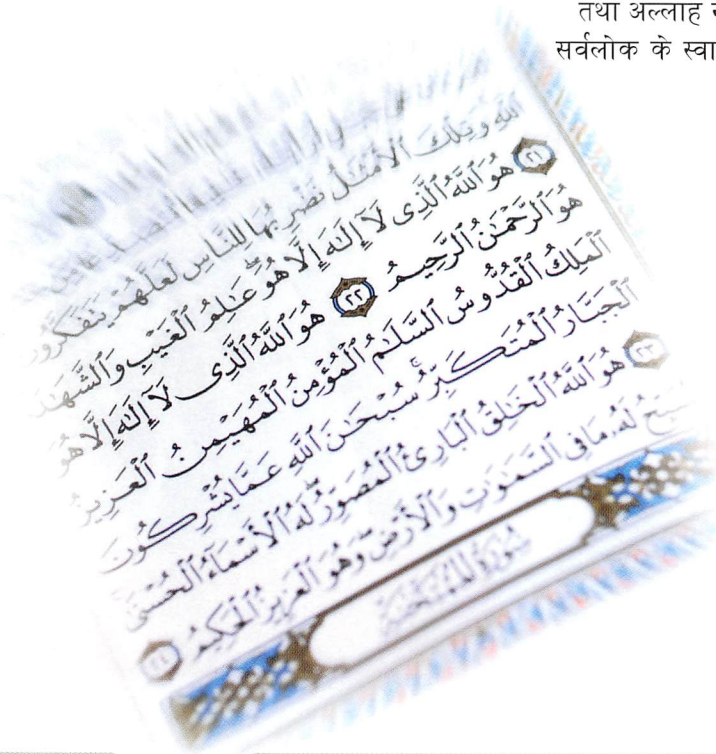 तथा अल्लाह
सर्वलोक के
ٱللَّهِ وَتِلْكَ ٱلْأَمْثَٰلُ نَضْرِبُهَا لِلنَّاسِ لَعَلَّهُمْ يَتَفَكَّرُونَ
٢١ هُوَ ٱللَّهُ ٱلَّذِى لَآ إِلَٰهَ إِلَّا هُوَ عَٰلِمُ ٱلْغَيْبِ وَٱلشَّهَٰدَ
هُوَ ٱلرَّحْمَٰنُ ٱلرَّحِيمُ ٢٢ هُوَ ٱللَّهُ ٱلَّذِى لَآ إِلَٰهَ إِلَّا هُوَ
ٱلْمَلِكُ ٱلْقُدُّوسُ ٱلسَّلَٰمُ ٱلْمُؤْمِنُ ٱلْمُهَيْمِنُ ٱلْعَزِيزُ
ٱلْجَبَّارُ ٱلْمُتَكَبِّرُ ۚ سُبْحَٰنَ ٱللَّهِ عَمَّا يُشْرِكُونَ
٢٣ هُوَ ٱللَّهُ ٱلْخَٰلِقُ ٱلْبَارِئُ ٱلْمُصَوِّرُ ۖ لَهُ ٱلْأَسْمَآءُ ٱلْحُسْنَىٰ
يُسَبِّحُ لَهُۥ مَا فِى ٱلسَّمَٰوَٰتِ وَٱلْأَرْضِ ۖ وَهُوَ ٱلْعَزِيزُ ٱلْحَكِيمُ ٢٤
سُورَةُ ٱلْمُمْتَحَنَةِ